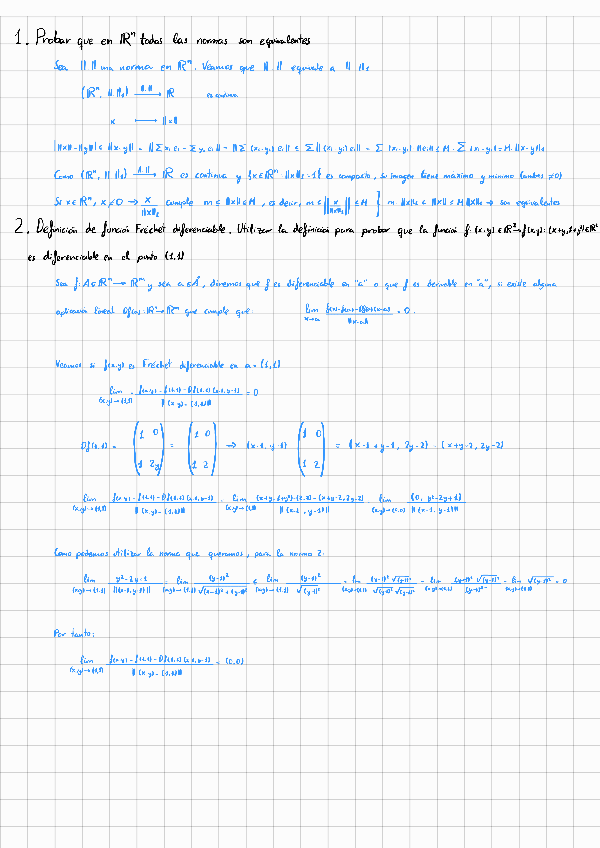 1. Probar que en ℝⁿ todas las normas son equivalentes
Sea || || una norma en ℝⁿ. Veamos que ||.|| equivale a || ||₁
(ℝⁿ, || ||₁) —||.||→ ℝ es continua
x ⟼ ||x||
| ||x|| - ||y|| | ≤ ||x-y|| = ||∑ xᵢ eᵢ - ∑ yᵢ eᵢ|| = ||∑ (xᵢ-yᵢ) eᵢ|| ≤ ∑ ||(xᵢ-yᵢ) eᵢ|| = ∑ |xᵢ-yᵢ| ||eᵢ|| ≤ M · ∑ |xᵢ-yᵢ| = M · ||x-y||₁
Como (ℝⁿ, || ||₁) —||.||→ ℝ es continua y {x∈ℝⁿ ||x||₁=1} es compacto, su imagen tiene maximo y minimo (ambos ≠0)
Si x∈ℝⁿ, x≠0 → x/||x||₁ cumple m ≤ ||x|| ≤ M, es decir, m ≤ ||x/||x||₁|| ≤ M } m ||x||₁ ≤ ||x|| ≤ M ||x||₁ → son equivalentes
2. Definición de función Fréchet diferenciable. Utilizar la definición para probar que la función f: (x,y) ∈ ℝ² → f(x,y) = (x+y, 1+y²) ∈ ℝ²
es diferenciable en el punto (1,1)
Sea f: A⊆ℝⁿ → ℝᵐ y sea a∈Å, diremos que f es diferenciable en "a" o que f es derivable en "a", si existe alguna
aplicación lineal Df(a): ℝⁿ → ℝᵐ que cumple que: lim x→a (f(x)-f(a)-Df(a)(x-a))/||x-a|| = 0.
Veamos si f(x,y) es Fréchet diferenciable en a = (1,1)
lim (x,y)→(1,1) (f(x,y) - f(1,1) - Df(1,1)(x-1, y-1))/||(x,y) - (1,1)|| = 0
Df(1,1) = (1 0; 1 2y) = (1 0; 1 2) → (x-1, y-1) (1 0; 1 2) = (x-1+y-1, 2y-2) = (x+y-2, 2y-2)
lim (x,y)→(1,1) (f(x,y) - f(1,1) - Df(1,1)(x-1, y-1))/||(x,y) - (1,1)|| = lim (x,y)→(1,1) ((x+y, 1+y²) - (2,2) - (x+y-2, 2y-2))/||(x-1, y-1)|| = lim (x,y)→(1,1) (0, y²-2y+1)/||(x-1, y-1)||
Como podemos utilizar la norma que queramos, para la norma 2:
lim (x,y)→(1,1) (y²-2y+1)/||(x-1, y-1)|| = lim (x,y)→(1,1) (y-1)²/√((x-1)²+(y-1)²) ≤ lim (x,y)→(1,1) (y-1)²/√(y-1)² = lim (x,y)→(1,1) (y-1)² √(y-1)²/√(y-1)² √(y-1)² = lim (x,y)→(1,1) (y-1)² √(y-1)²/(y-1)² = lim (x,y)→(1,1) √(y-1)² = 0
Por tanto:
lim (x,y)→(1,1) (f(x,y) - f(1,1) - Df(1,1)(x-1, y-1))/||(x,y) - (1,1)|| = (0,0)